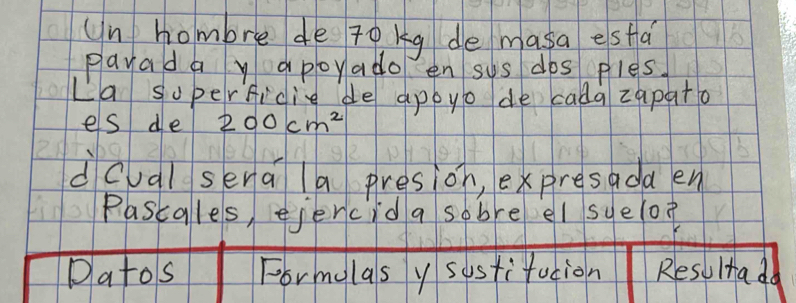 Un hombre de 70 kg de masa está
parada y apoyado en sus dos pies.
La superficie de apoyo de cada zapato
es de 200 cm²
¿Cual será la presión, expresada en
Pascales, ejercida sobre el suelo?
Datos Formulas y sustitucion Resultado